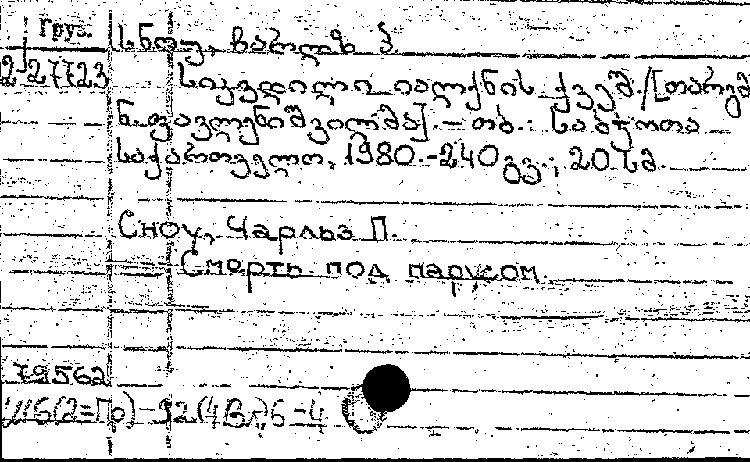 Груз.
სნოუ, ჩარლზ პ.
2-27723
სიკვდილი იალქნის ქვეშ. /[თარგმ.
ნ. ფავლენიშვილმა]. – თბ.: საბჭოთა
საქართველო, 1980. -240 გვ.; 20 სმ.
Сноу, Чарльз П.
Смерть под парусом.
79562
(2=Пр)-92(4Вл)6-4